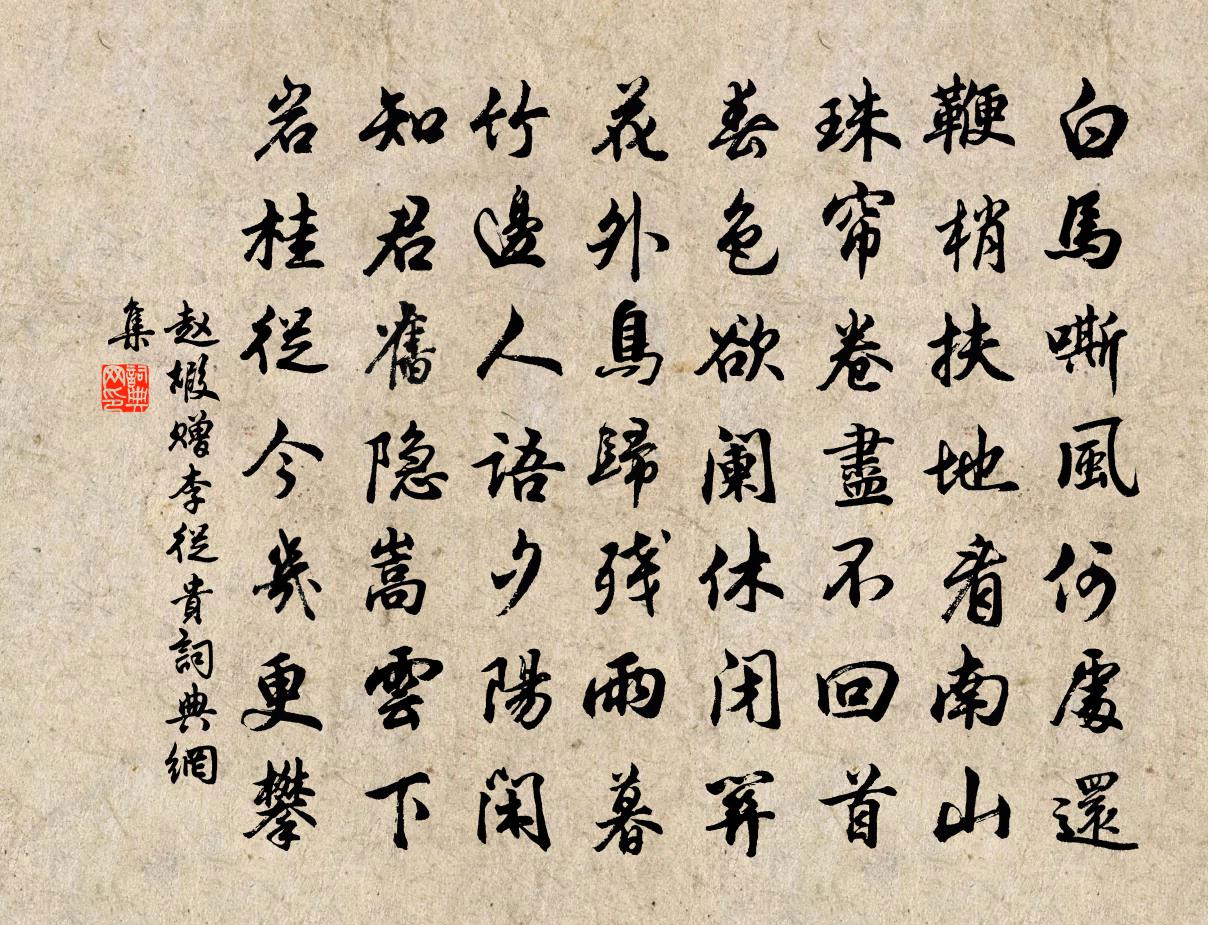 白馬嘶風何處還
鞭梢扶地看南山
珠帘卷盡不回首
春色欲阑休闭關
花外鳥歸残雨暮
竹邊人語夕陽閑
知君舊隐嵩雲下
岩桂從今幾更攀
赵嘏赠李從貴詞典網
集
詞典
网印